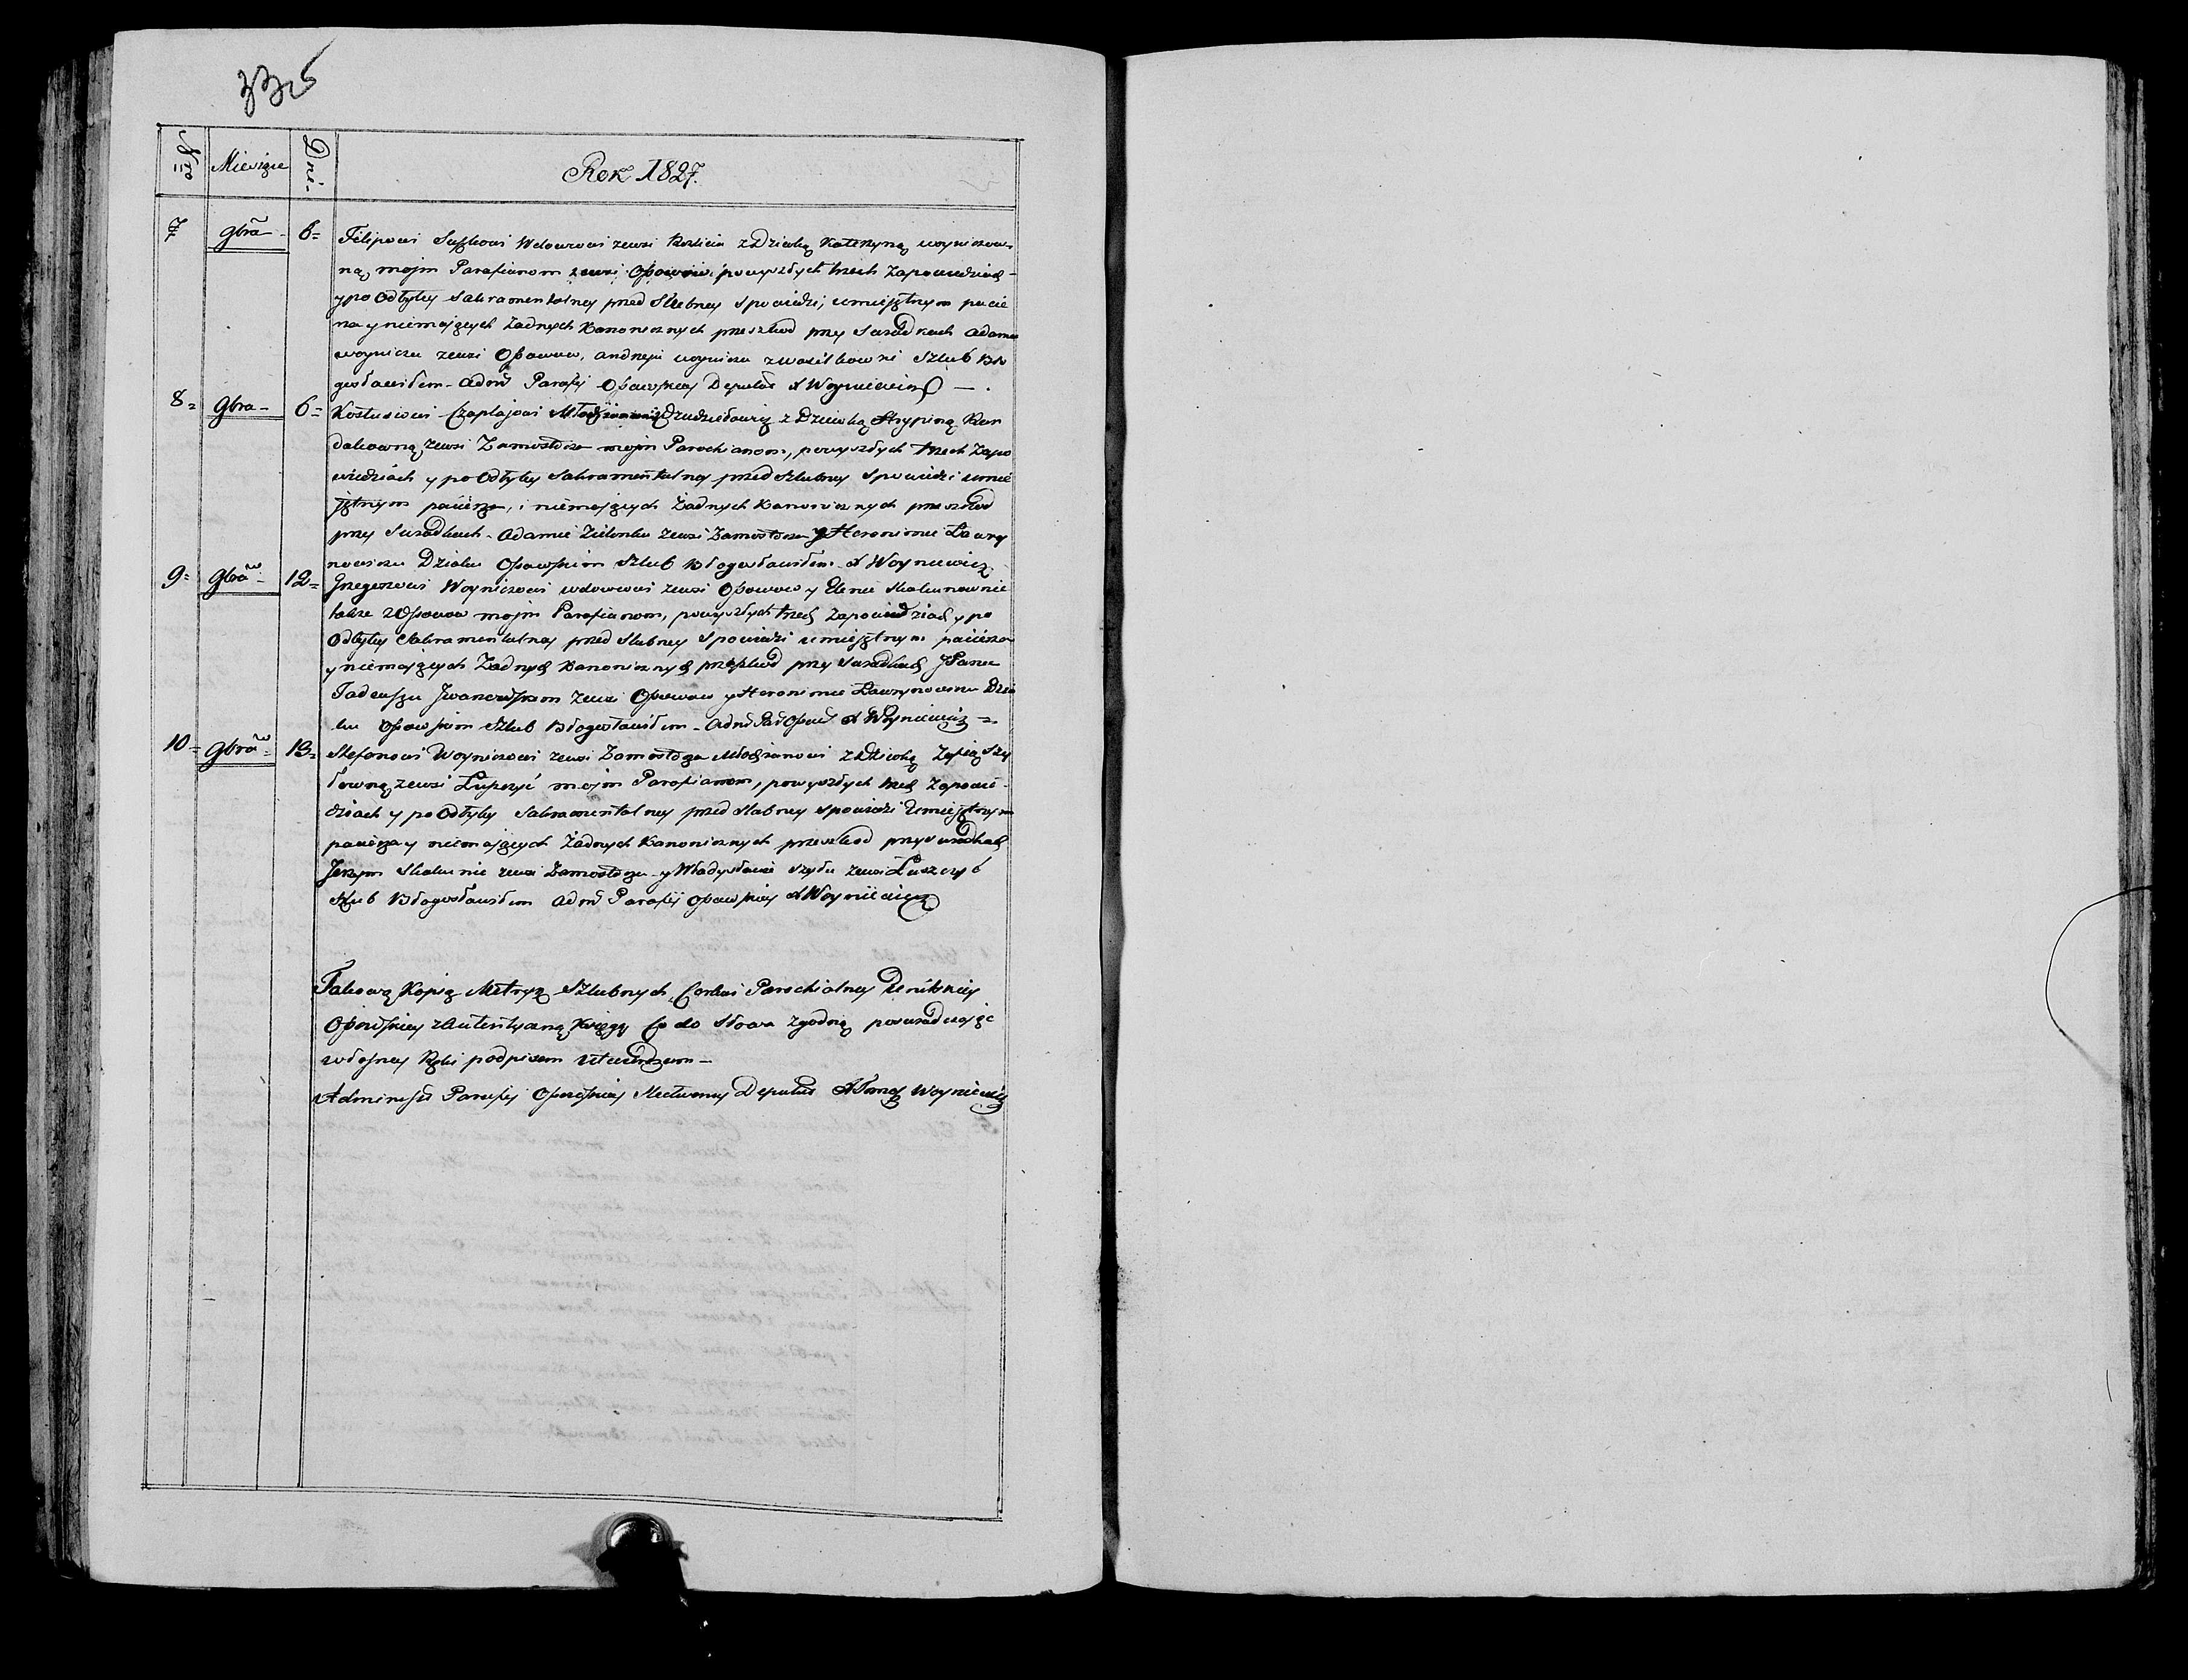 335
Nro Miesiące Dni. Rok 1827.
7 9bra 6 Filipowi Wdowcowi zewsi z Dziewką Katerzyną woyniczow
ną, mojm Parafianom zewsi Opowow powyszłych trzech Zapowiedziach
y po Odbytey Sakramentalney przed Slubney Spowiedzi, umiejętnym pacie
rza y niemających Zadnych Kanonicznych przeszkod przy Swiadkach Adamie
woyniczu zewsi Opowow, andrzeju woyniczu Szlub Bło
gosławiłem - Admr Parafij Opowskiey Deputat A Woyniewicz -
8 9bra 6 Kostusiowi Czaplajowi z Dziewką
dakowną zewsi Zamostocza mojm Parochianom, powyszłych trzech Zapo
wiedziach y po Odbytey Sakramentalney przed Szlubney Spowiedzi umie
jętnym pacierza, i niemających Żadnych Kanonicznych przeszkod
przy Swiadkach - Adamie Zielonku zewsi Zamostocza y Heronimie Ławry
nowiczu Dziaku Opowskim Szlub Błogosławiłem A Woyniewicz
9 9bra 12 Grzegorzowi Woyniczowi wdowcowi zewsi Opowow y Elenie Skakunownie
takze z Opowow mojm Parafianom, powyszłych trzech Zapowiedziach y po
Odbytey Sakramentalney przed Slubney Spowiedzi umiejętnym pacierza
y niemających Zadnych Kanonicznych przeszkod przy Swiadkach JPanu
Tadeuszu Jwanowskom zewsi Opowow y Heronimie Ławrynowiczu Dzia
ku Opowskim Szlub Błogosławiłem - Admr Par Opow A Woyniewicz
10 9bra 13 Stefanowi Woyniczowi zewsi Zamostocza Młodzianowi z Dziewką Zofią Szy
downą zewsi Łuszczyć mojm Parafianom, powyszłych trzech Zapowie
dziach y po Odbytey Sakramentalney przed Slubney Spowiedzi Umiejętnym
pacierza y niemających Żadnych Kanonicznych przeszkod przy Swiadkach
Jerzym Skakunie zewsi Zamostocza y Władysławie Szydu zewsi Łuszczyć
Szlub Błogosławiłem Admr Parafij Opowskiey A Woyniewicz
Takową Kopią Metryk Szlubnych Cerkwi Parochialney Unitskiey
Opowskiey z Autentyczną Księgą Co do Słowa zgodną poswiadczając
własney Ręki podpisem utwierdzam -
Administr Parafij Opowskiey Deputat A Tomasz Woyniewicz